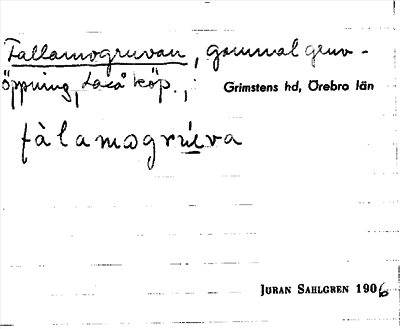 Tallamogruvan, gammal gruv-
öppning, Laså köp.,
Grimstens hd, Örebro län
tàlamogrúva
Jöran Sahlgren 1906